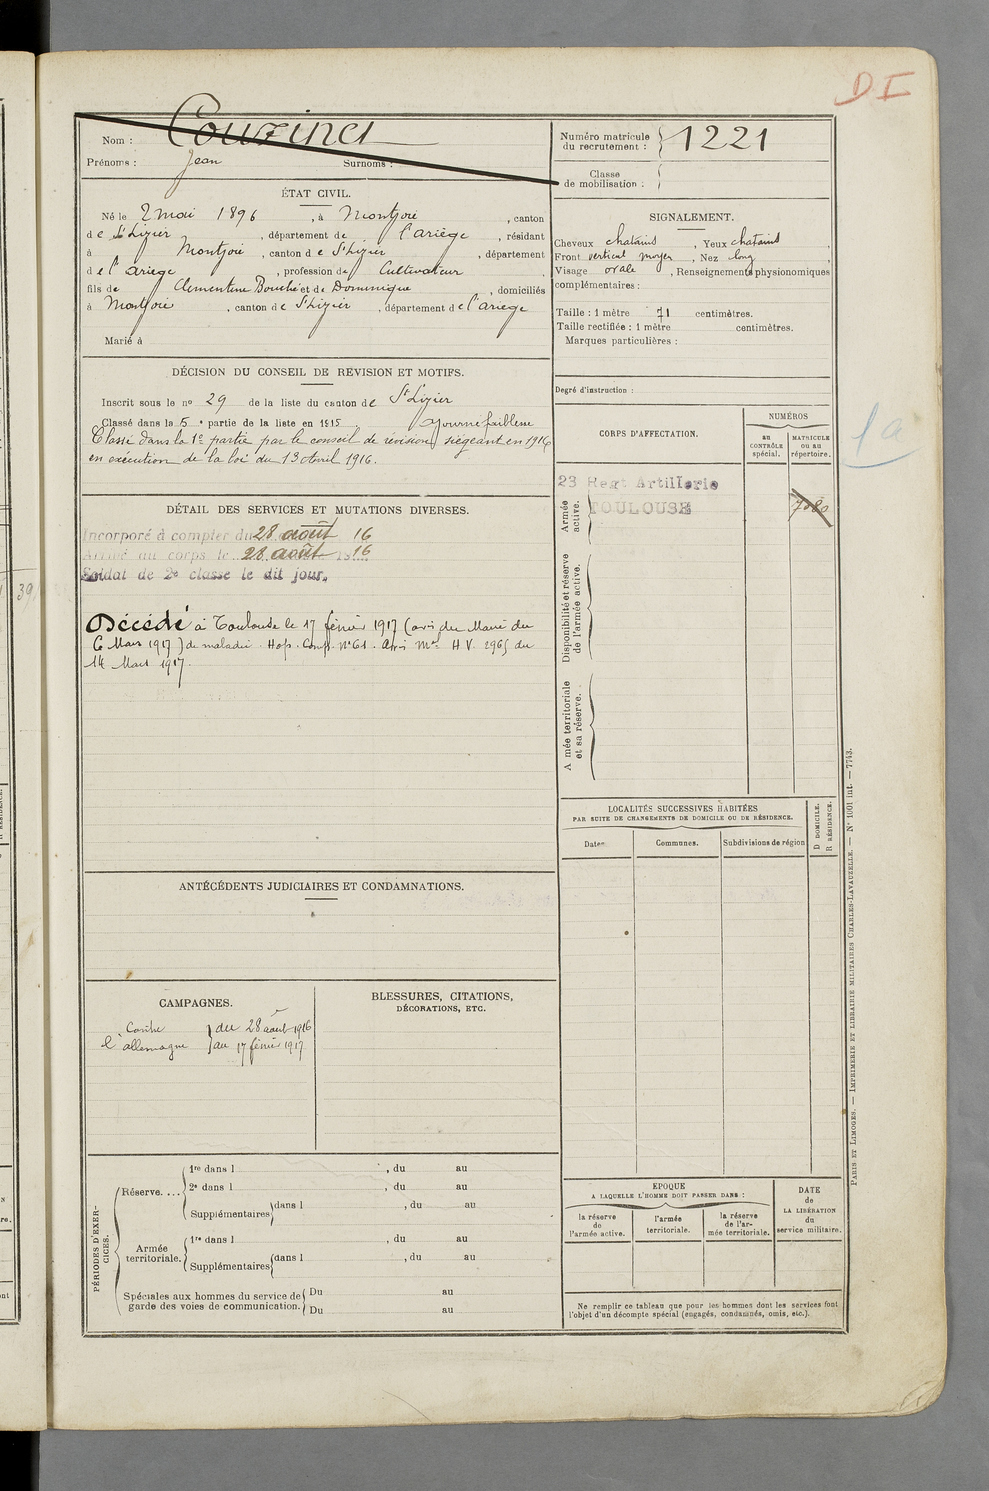 DI
Nom : Couzinet
Prénoms : Jean Surnoms :
Numéro matricule du recrutement : 1221
Classe de mobilisation :
ÉTAT CIVIL.
Né le 2 mai 1896, à Montjoie, canton
de St Lizier, département de l'ariège, résidant
à Montjoie, canton de St Lizier, département
de l'Ariege, profession de Cultivateur
fils de Clementine Bouché et de Dominique, domiciliés
à Montjoie, canton de St Lizier, département de l'ariege
Marié à
SIGNALEMENT.
Cheveux chatains, Yeux chatains,
Front vertical moyen, Nez long,
Visage ovale, Renseignements physionomiques
complémentaires :
Taille : 1 mètre 71 centimètres.
Taille rectifiée : 1 mètre centimètres.
Marques particulières :
Degré d'instruction :
DÉCISION DU CONSEIL DE RÉVISION ET MOTIFS.
Inscrit sous le no 29 de la liste du canton de St Lizier
Classé dans la 5e partie de la liste en 1915 Ajourné faiblesse
Classé dans la 1e partie par le conseil de révision siégeant en 1916
en exécution de la loi du 13 Avril 1916.
CORPS D'AFFECTATION.
NUMÉROS
au CONTRÔLE spécial.
MATRICULE ou au répertoire.
1a
Armée active.
23 Regt Artillerie
TOULOUSE
7080
Disponibilité et réserve de l'armée active.
A mée territoriale et sa réserve.
DÉTAIL DES SERVICES ET MUTATIONS DIVERSES.
Incorporé à compter du 28 août 16
Arrivé au corps le 28 août 1916
Soldat de 2e classe le dit jour.
Décédé à Toulouse le 17 février 1917 (avis du Maire du
6 Mars 1917) de maladie. Hop. Comp. n°61. Avis Mel H V. 2965 du
14 Mars 1917.
LOCALITÉS SUCCESSIVES HABITÉES
PAR SUITE DE CHANGEMENTS DE DOMICILE OU DE RÉSIDENCE.
D DOMICILE.
R RÉSIDENCE.
Dates
Communes.
Subdivisions de région
ANTÉCÉDENTS JUDICIAIRES ET CONDAMNATIONS.
CAMPAGNES.
Contre } du 28 août 1916
l'allemagne } au 17 février 1917
BLESSURES, CITATIONS,
DÉCORATIONS, ETC.
PÉRIODES D'EXERCICES.
Réserve....
1re dans l , du au
2e dans l , du au
Supplémentaires dans l , du au
Armée territoriale.
1re dans l , du au
Supplémentaires dans l , du au
Spéciales aux hommes du service de garde des voies de communication.
Du au
Du au
EPOQUE
A LAQUELLE L'HOMME DOIT PASSER DANS :
la réserve de l'armée active.
l'armée territoriale.
la réserve de l'armée territoriale.
DATE de LA LIBÉRATION du service militaire.
Ne remplir ce tableau que pour les hommes dont les services font
l'objet d'un décompte spécial (engagés, condamnés, omis, etc.).
PARIS ET LIMOGES. — IMPRIMERIE ET LIBRAIRIE MILITAIRES CHARLES-LAVAUZELLE. — N° 1001 int. — 7743.